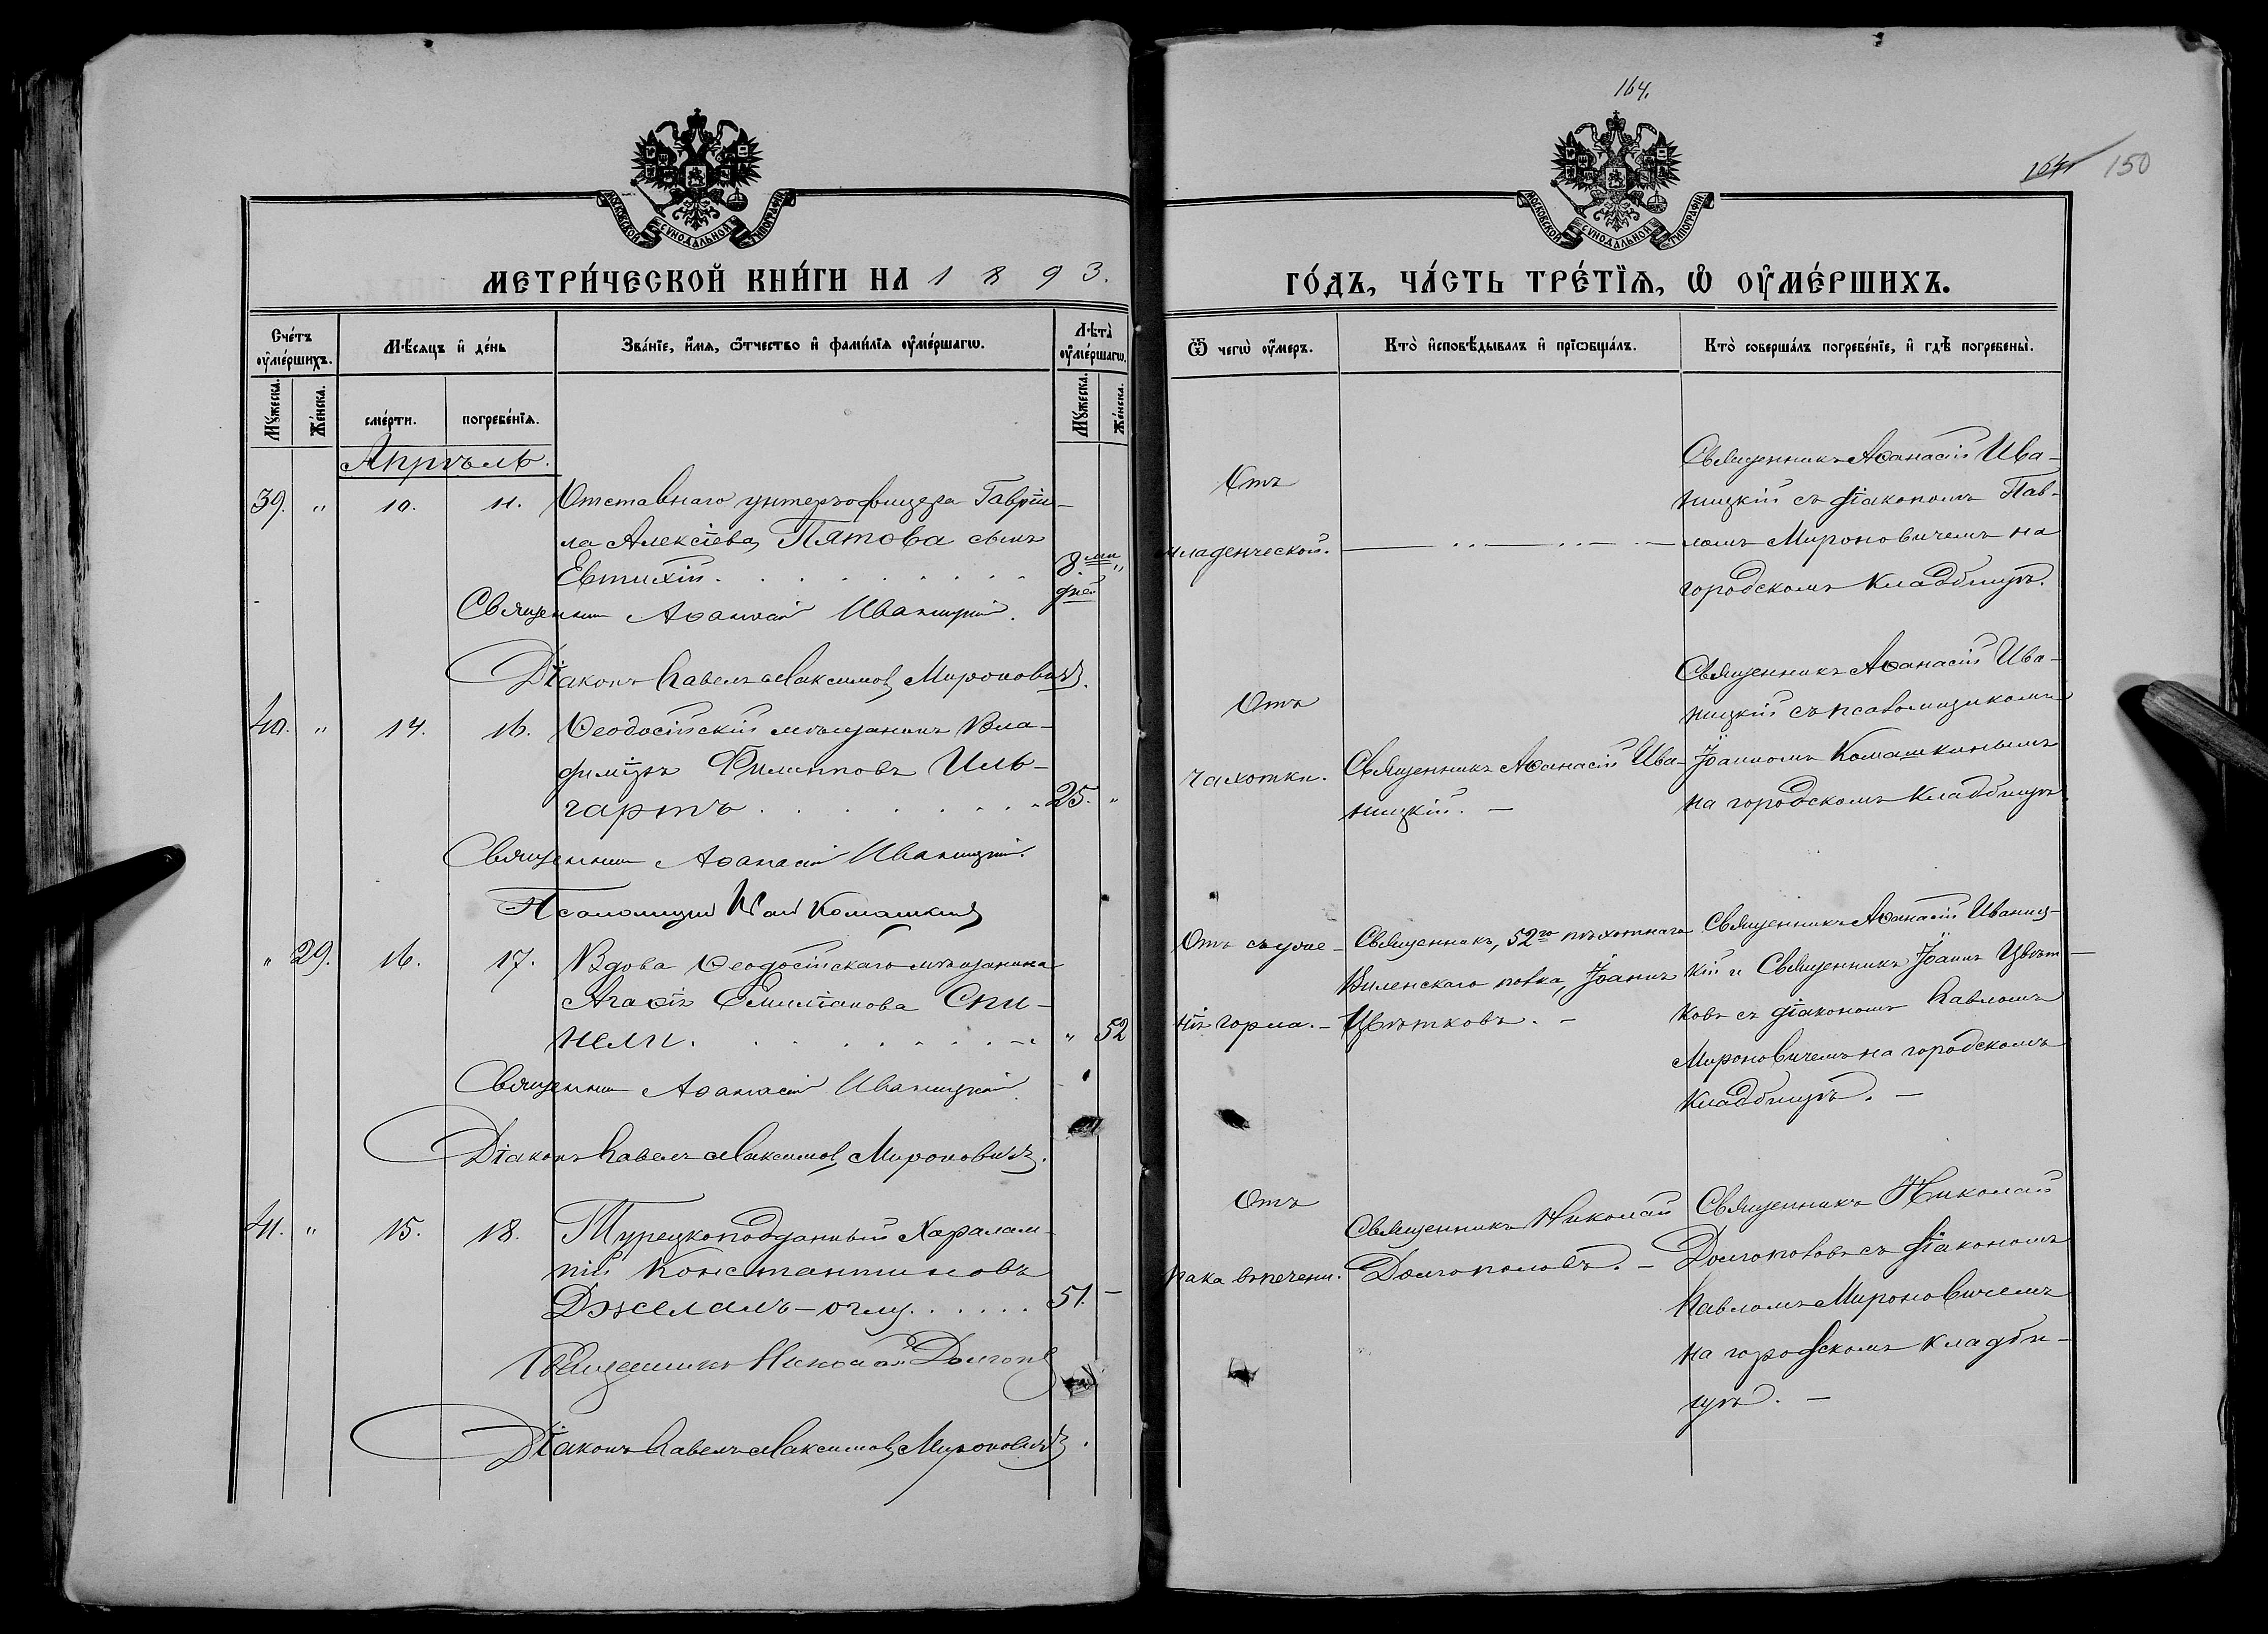 164.
164 150
МОСКОВСКОЙ СУНОДАЛЬНОЙ ТИПОГРАФІИ
МОСКОВСКОЙ СУНОДАЛЬНОЙ ТИПОГРАФІИ
МЕТРИ́ЧЕСКОЙ КНИ́ГИ НА 1893.
ГО́ДЪ, ЧА́СТЬ ТРЕ́ТЇѦ, Ѡ҆ ОУ҆МЕ́РШИХЪ.
Сче́тъ оу҆ме́ршихъ.
Мѣ́сѧцъ и҆ де́нь
Зва́нїе, и҆́мѧ, ѻ҆́тчество и҆ фами́лїѧ оу҆ме́ршагѡ.
Лѣ́та оу҆ме́ршагѡ.
Мꙋ́жеска.
Же́нска.
сме́рти.
погребе́нїѧ.
Мꙋ́жеска.
Же́нска.
Ѿ чегѡ̀ оу҆́меръ.
Кто̀ и҆сповѣ́дывалъ и҆ прїѡбща́лъ.
Кто̀ соверша́лъ погребе́нїе, и҆ гдѣ̀ погребены̀.
Апрѣль.
39. " 10. 11. Отставнаго унтеръ-офицера Гаврiи-
ла Алексіева Пятова сынъ
Евтихій. 8 ми "
дней
Священникъ Аѳанасій Иваницкій.
Діаконъ Павелъ Максимовъ Мироновичъ.
Отъ
младенческой.
Священникъ Аѳанасій Ива-
ницкій съ діакономъ Пав-
ломъ Мироновичемъ на
городскомъ кладбищѣ.
40. " 14. 16. Ѳеодосійскій мѣщанинъ Вла-
диміръ Филипповъ Иль-
гартъ 25. "
Священникъ Аѳанасій Иваницкій.
Псаломщикъ Комашкинъ
Отъ
чахотки.
Священникъ Аѳанасій Ива-
ницкій. —
Священникъ Аѳанасій Ива-
ницкій съ псаломщикомъ
Іоанномъ Комашкинымъ
на городскомъ кладбищѣ.
" 29. 16. 17. Вдова Ѳеодосійскаго мѣщанина
Агаѳія Емиліанова Спи-
нели. " 52
Священникъ Аѳанасій Иваницкій.
Діаконъ Павелъ Максимовъ Мироновичъ.
Отъ съуже-
нія горла. —
Священникъ, 52го пѣхотнаго
Виленскаго полка, Іоаннъ
Цвѣтковъ. —
Священникъ Аѳанасій Иваниц-
кій и Священникъ Іоаннъ Цвѣт-
ковъ съ діакономъ Павломъ
Мироновичемъ на городскомъ
кладбищѣ. —
41. " 15. 18. Турецкоподданный Харалам-
пій Константиновъ
Джеламъ-оглу. 51. —
Священникъ Николай Долгоп
Діаконъ Павелъ Максимовъ Мироновичъ.
Отъ
рака въ печени.
Священникъ Николай
Долгополовъ. —
Священникъ Николай
Долгополовъ съ діакономъ
Павломъ Мироновичемъ
на городскомъ кладби-
щѣ. —